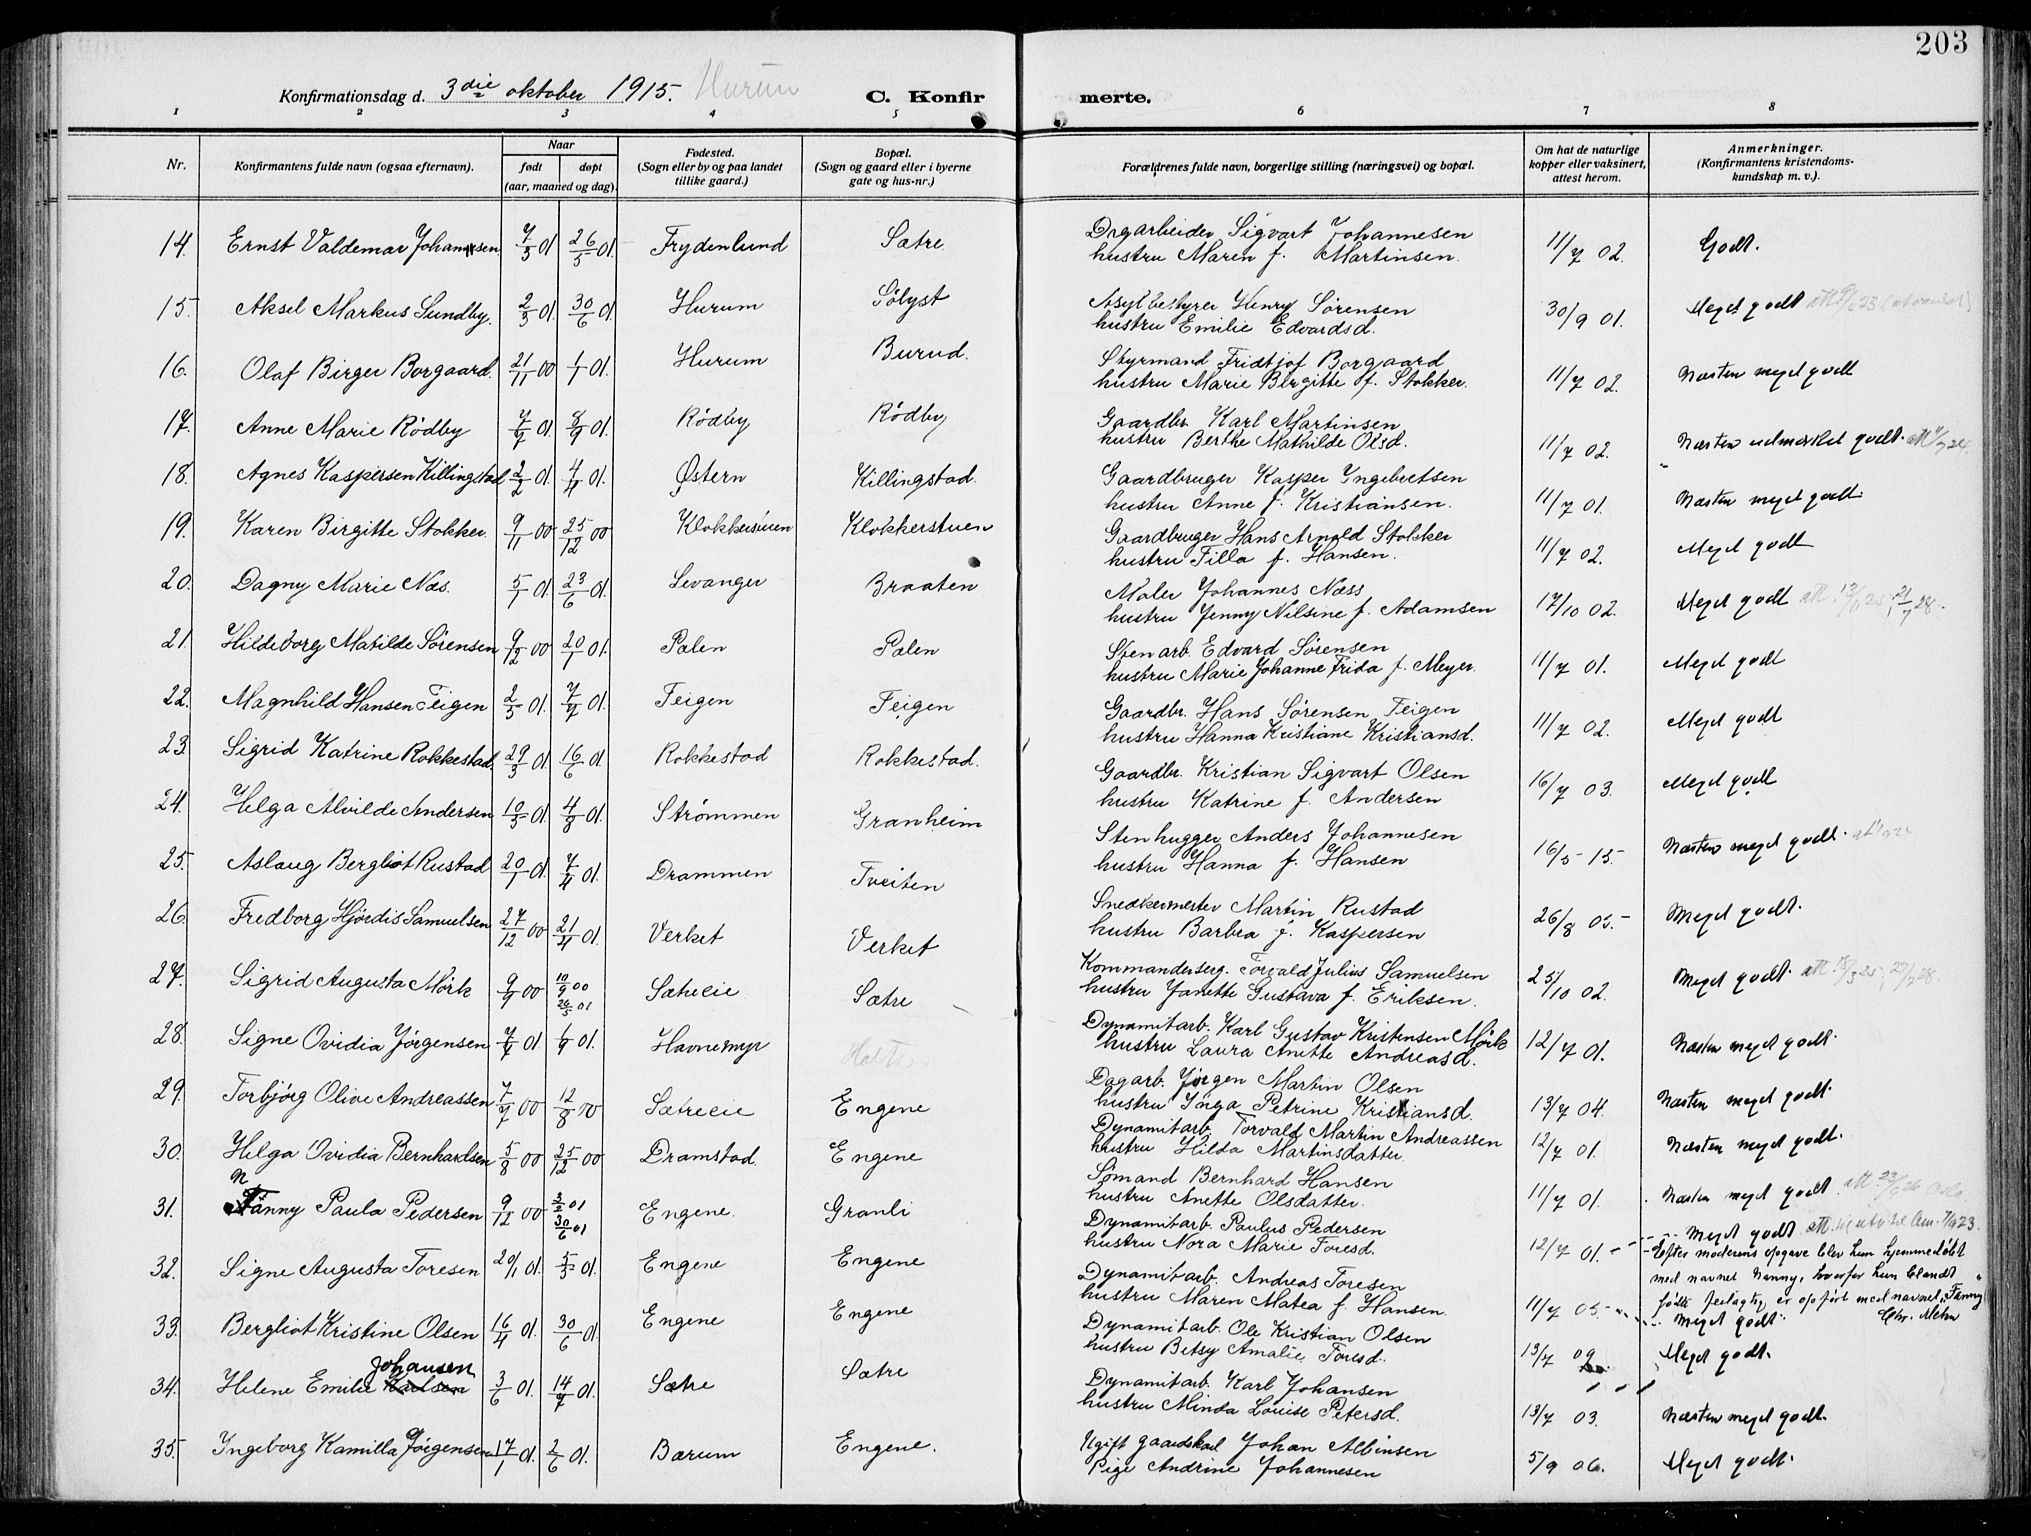 203
Konfirmationsdag d. 3die oktober 1915. Hurum C. Konfir merte.
1 2 3 4 5 6 7 8
Nr. Konfirmantens fulde navn (ogsaa efternavn). Naar født døpt (aar, maaned og dag). Fødested. (Sogn eller by og paa landet tillike gaard.) Bopæl. (Sogn og gaard eller i byerne gate og hus-nr.) Forældrenes fulde navn, borgerlige stilling (næringsvei) og bopæl. Om hat de naturlige kopper eller vaksinert, attest herom. Anmerkninger. (Konfirmantens kristendoms- kundskap m. v.).
14. Ernst Valdemar Johannsen 7/3 01 26/5 01. Frydenlund Sætre Dagarbeider Sigvart Johannesen 11/7 02. Godt.
hustru Maren f. Martinsen.
15. Aksel Markus Sundby. 2/3 01. 30/6 01. Hurum Sølyst Asylbestyrer Henry Sørensen 30/9 01. Meget godt
hustru Emilie Edvardsd.
16. Olaf Birger Borgaard. 21/11 00 1/1 01. Hurum Burud. Styrmand Fridtjof Borgaard 11/7 02. Næsten meget godt
hustru Marie Birgitte f. Stokker.
17. Anne Marie Rødby 7/7 01. 8/9 01. Rødby Rødby Gaardbr. Karl Martinsen 11/7 02. Næsten udmerket godt.
hustru Berthe Mathilde Olsd.
18. Agnes Kaspersen Killingstad 2/2 01. 4/4 01. Østern Killingstad. Gaardbruger Kasper Ingebretsen 11/7 01. Næsten meget godt.
hustru Anne f. Kristiansen.
19. Karen Birgitte Stokker. 9/11 00 25/12 00 Klokkerstuen Klokkerstuen Gaardbruger Hans Arnold Stokker 11/7 02. Meget godt
hustru Tilla f. Hansen.
20. Dagny Marie Næs. 5/1 01. 23/6 01. Levanger Braaten Maler Johannes Næss 17/10 02. Meget godt att. 13/11 25, 21/7 28.
hustru Jenny Nilsine f. Adamsen
21. Hildeborg Matilde Sørensen 9/12 00 20/1 01. Palen Palen Stenarb. Edvard Sørensen 11/7 01. Meget godt
hustru Marie Johanne Frida f. Meyer.
22. Magnhild Hansen Feigen 2/3 01. 7/7 01. Feigen Feigen Gaardbr. Hans Sørensen Feigen 11/7 02. Meget godt
hustru Hanna Kristiane Kristiansd.
23. Sigrid Katrine Rokkestad. 29/3 01. 16/6 01. Rokkestad Rokkestad. Gaardbr. Kristian Sigvart Olsen 16/7 03. Meget godt
hustru Katrine f. Andersen
24. Helga Alvilde Andersen 10/3 01. 4/8 01. Strømmen Granheim Stenhugger Anders Johannesen 16/5 15. Næsten meget godt.
hustru Hanna f. Hansen
25. Aslaug Bergliot Rustad 20/1 01. 7/4 01. Drammen Tveiten Snedkermester Martin Rustad 26/8 05. Meget godt.
hustru Barbra f. Kaspersen
26. Fredborg Hjørdis Samuelsen 27/12 00 21/4 01. Verket Verket Kommanderserg. Torvald Julius Samuelsen 25/10 02. Meget godt.
hustru Janette Gustava f. Eriksen.
27. Sigrid Augusta Mørk 9/9 00 10/9 00 26/5 01 Sætreeie Sætre Dynamitarb. Karl Gustav Kristensen Mørk 12/7 01. Næsten meget godt.
hustru Laura Anette Andreasd.
28. Signe Ovidia Jørgensen 7/7 01. 1/9 01. Havnemyr Holte Dagarb. Jørgen Martin Olsen 13/7 04. Næsten meget godt.
hustru Inga Petrine Kristiansd.
29. Torbjørg Olive Andreassen 7/7 00 12/8 00 Sætreeie Engene Dynamitarb. Torvald Martin Andreassen 12/7 01. Næsten meget godt.
hustru Hilda Martinsdatter
30. Helga Ovidia Bernhardsen 5/8 00 25/12 00 Dramstad. Engene Sømand Bernhard Hansen 11/7 01. Næsten meget godt
hustru Anette Olsdatter.
31. N Fanny Paula Pedersen 9/12 00 3/2 01 30/6 01 Engene. Granli Dynamitarb. Paulus Pedersen 12/7 01. Meget godt
hustru Nora Marie Toresd.
Efter moderens opgave blev hun hjemmedøbt
med navnet Nanny, hvorfor hun blandt
fødte feilagtig er opført med navnet "Fanny"
Chr. Mehn
32. Signe Augusta Toresen 20/1 01. 5/3 01. Engene Engene Dynamitarb. Andreas Toresen 11/7 05. Meget godt.
hustru Maren Matea f. Hansen.
33. Bergliot Kristine Olsen 16/4 01. 30/6 01. Engene Engene Dynamitarb. Ole Kristian Olsen 13/7 09 Meget godt.
hustru Betsy Amalie Toresd.
34. Helene Emilie Karlsen Johansen 3/6 01. 14/7 01. Sætre Sætre Dynamitarb. Karl Johansen 13/7 03. Næsten meget godt.
hustru Minda Louise Petersd.
35. Ingeborg Kamilla Jørgensen 17/1 01. 2/6 01. Bærum Engene. Ugift gaardskarl Johan Albinsen 5/9 06. Meget godt.
Pige Andrine Johannesen